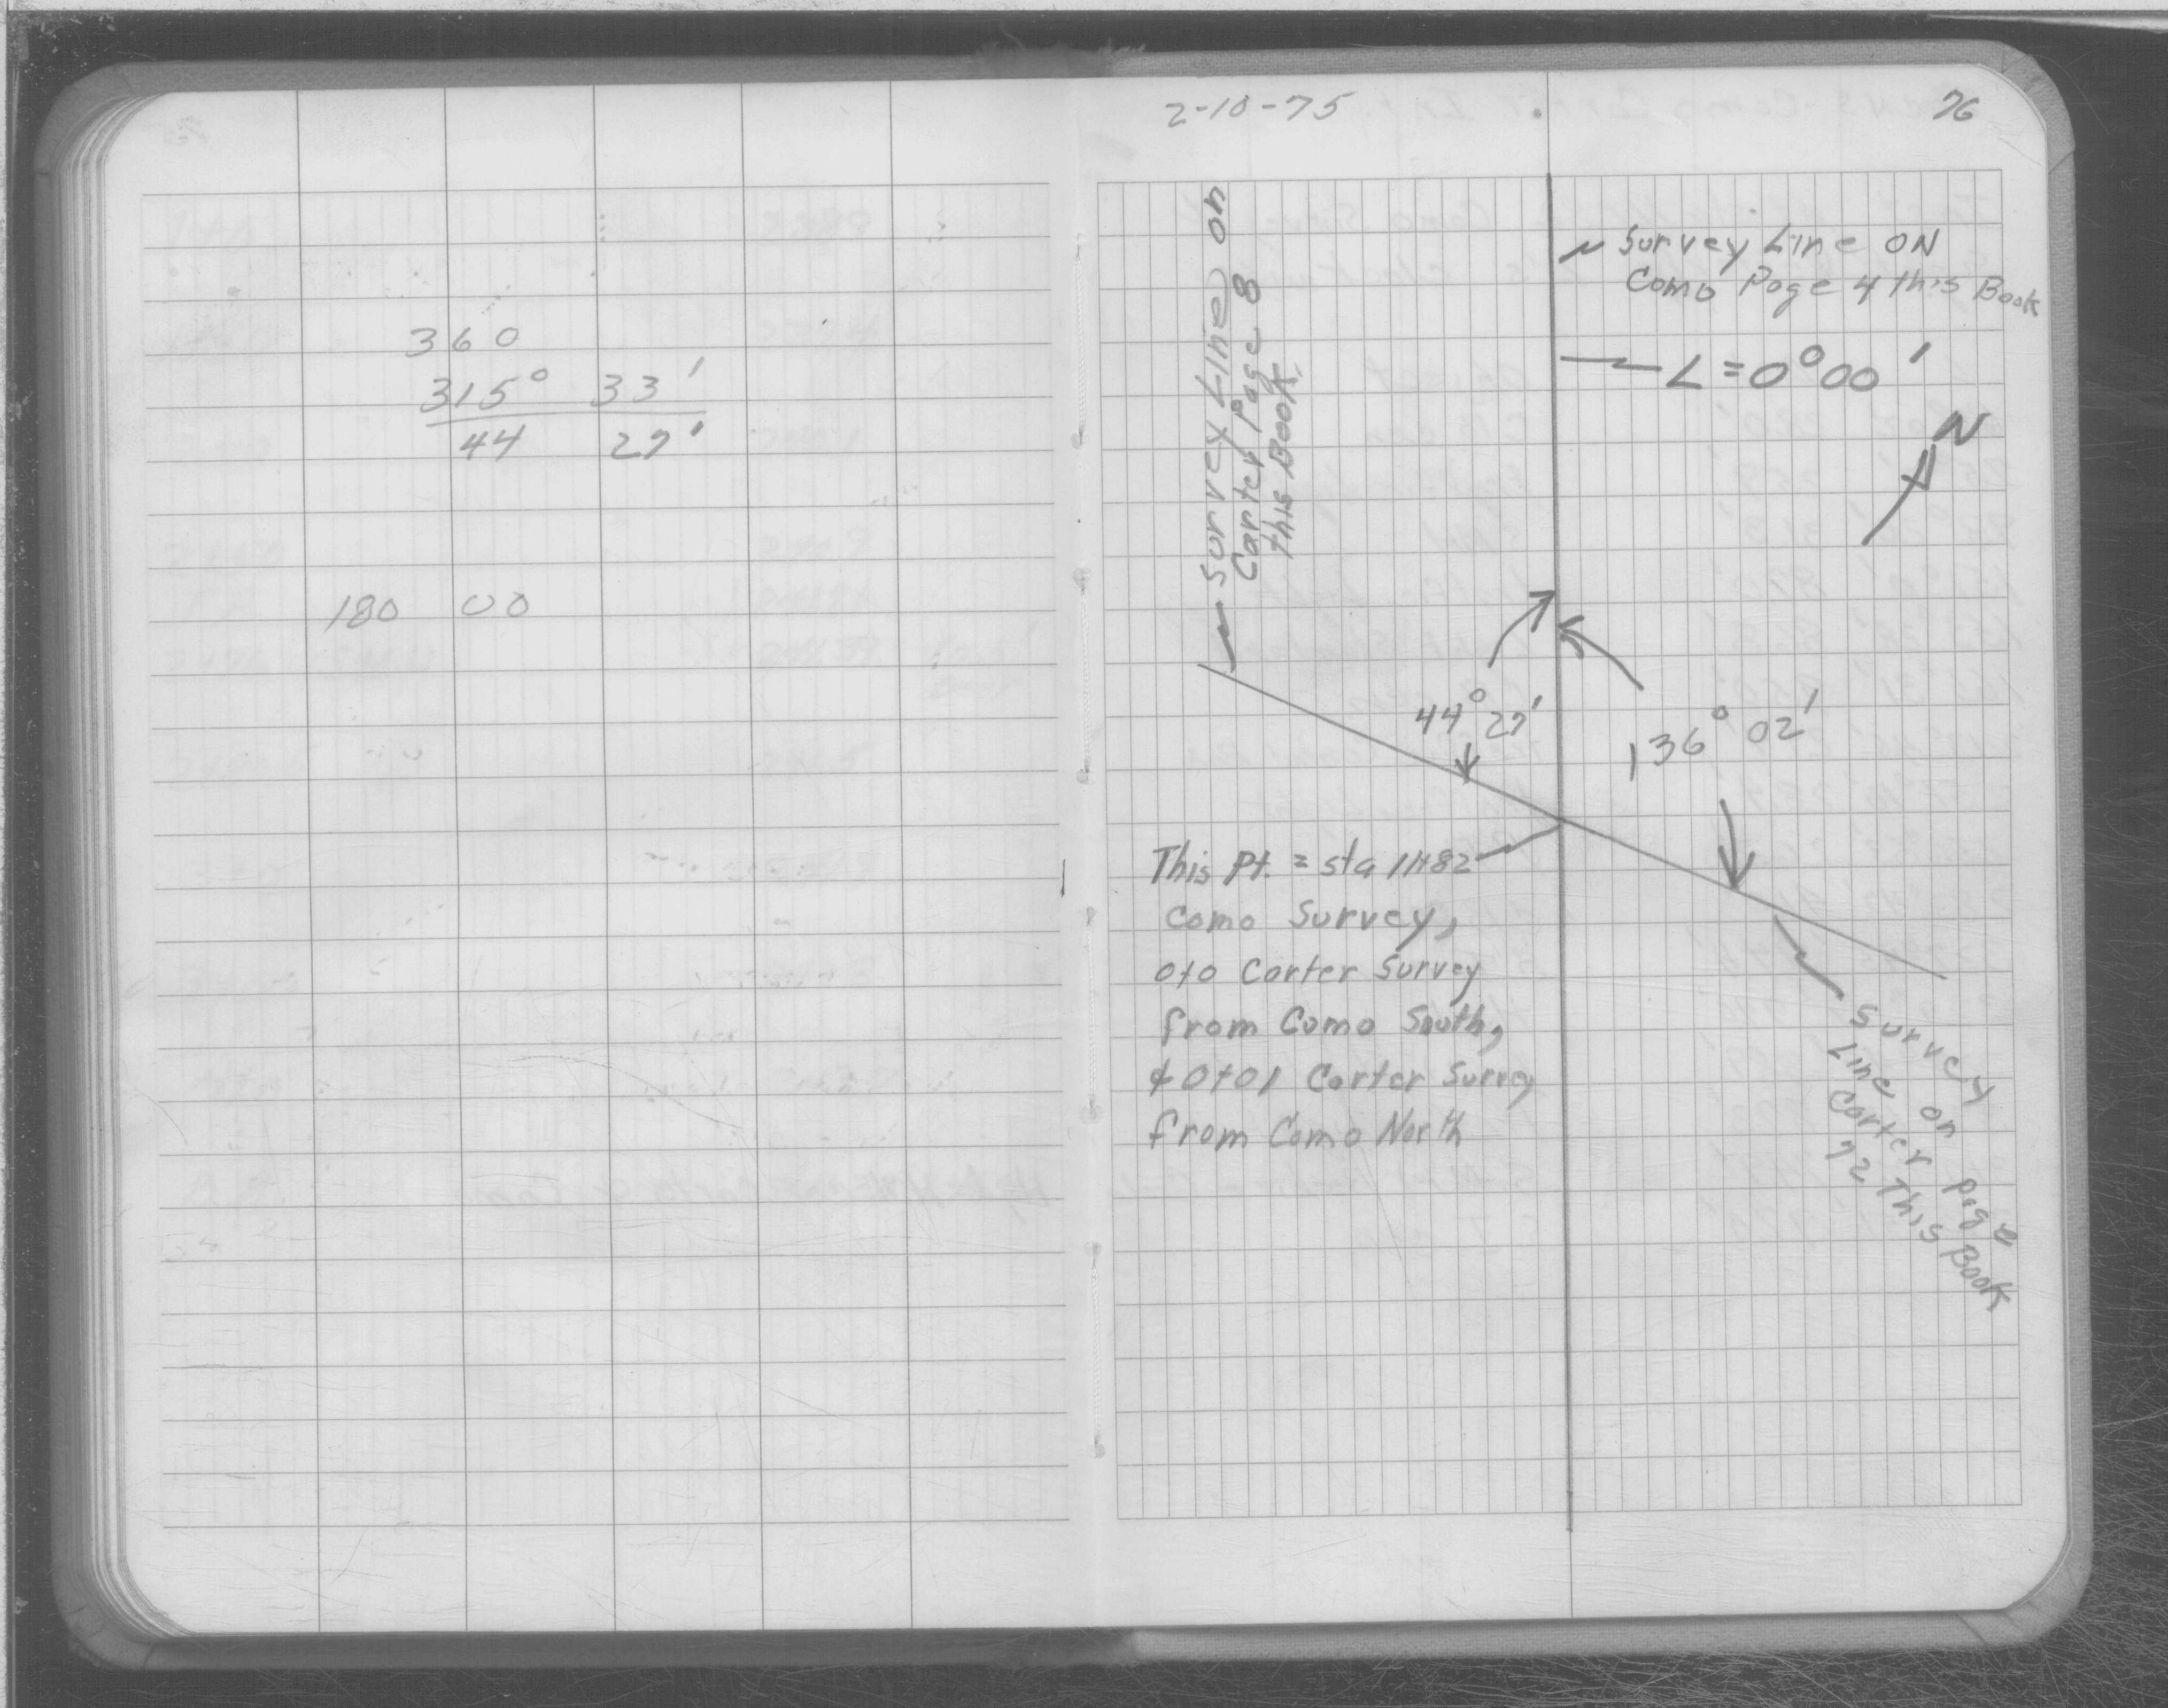 360
315° 33'
44 27'
180 00
2-10-75
76
Survey Line on
Carter Page 8
this Book
Survey Line ON
Como Page 4 this Book
L = 0° 00'
N
44° 27'
136° 02'
This Pt. = sta 11+82
Como Survey,
0+0 Carter Survey
from Como South,
& 0+01 Carter Survey
from Como North
Survey
Line on
Carter page
72 This Book